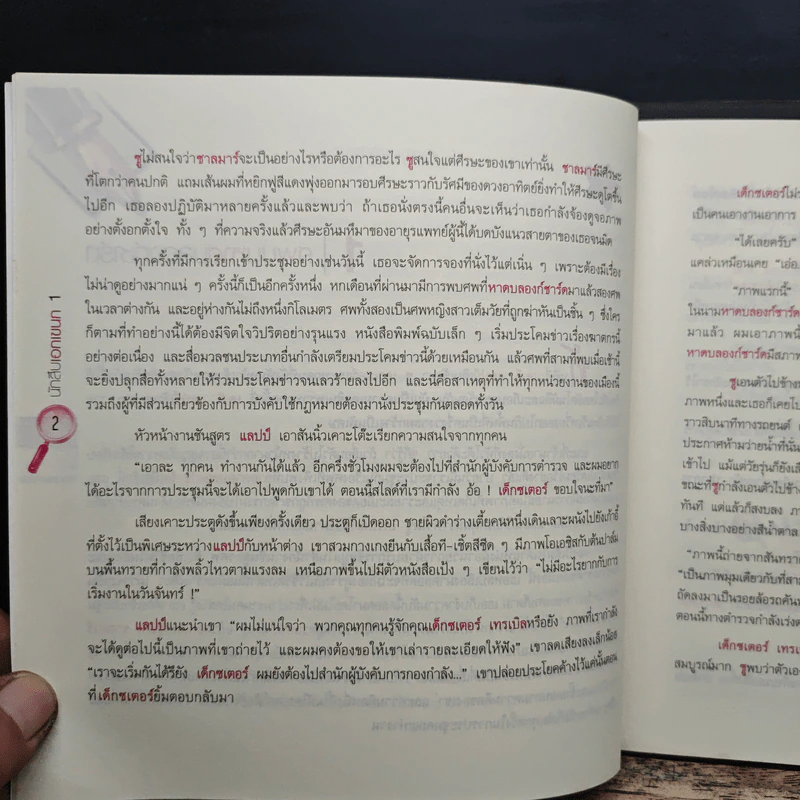 ซูไม่สนใจว่าชาลมาร์จะเป็นอย่างไรหรือต้องการอะไร ซูสนใจแต่ศีรษะของเขาเท่านั้น ชาลมาร์มีศีรษะ
ที่โตกว่าคนปกติ แถมเส้นผมที่หยิกฟูสีแดงพุ่งออกมารอบศีรษะราวกับรัศมีของดวงอาทิตย์ยิ่งทำให้ศีรษะดูโตขึ้น
ไปอีก เธอลองปฏิบัติมาหลายครั้งแล้วและพบว่า ถ้าเธอนั่งตรงนี้คนอื่นจะเห็นว่าเธอกำลังจ้องดูจอภาพ
อย่างตั้งอกตั้งใจ ทั้ง ๆ ที่ความจริงแล้วศีรษะอันมหึมาของอายุรแพทย์ผู้นี้ได้บดบังแนวสายตาของเธอจนมิด
ทุกครั้งที่มีการเรียกเข้าประชุมอย่างเช่นวันนี้ เธอจะจัดการจองที่นั่งไว้แต่เนิ่น ๆ เพราะต้องมีเรื่อง
ไม่น่าดูอย่างมากแน่ ๆ ครั้งนี้ก็เป็นอีกครั้งหนึ่ง หกเดือนที่ผ่านมามีการพบศพที่หาดบลองก์ชาร์ดมาแล้วสองศพ
ในเวลาต่างกัน และอยู่ห่างกันไม่ถึงหนึ่งกิโลเมตร ศพทั้งสองเป็นศพหญิงสาวเต็มวัยที่ถูกฆ่าหั่นเป็นชิ้น ๆ ซึ่งใคร
ก็ตามที่ทำอย่างนี้ได้ต้องมีจิตใจวิปริตอย่างรุนแรง หนังสือพิมพ์ฉบับเล็ก ๆ เริ่มประโคมข่าวเรื่องฆาตกรนี้
อย่างต่อเนื่อง และสื่อมวลชนประเภทอื่นกำลังเตรียมประโคมข่าวนี้ด้วยเหมือนกัน แล้วศพที่สามที่พบเมื่อเช้านี้
จะยิ่งปลุกสื่อทั้งหลายให้ร่วมประโคมข่าวจนเลวร้ายลงไปอีก และนี่คือสาเหตุที่ทำให้ทุกหน่วยงานของเมืองนี้
รวมถึงผู้ที่มีส่วนเกี่ยวข้องกับการบังคับใช้กฎหมายต้องมานั่งประชุมกันตลอดทั้งวัน
หัวหน้างานชันสูตร แลปป์ เอาสันนิ้วเคาะโต๊ะเรียกความสนใจจากทุกคน
“เอาละ ทุกคน ทำงานกันได้แล้ว อีกครึ่งชั่วโมงผมจะต้องไปที่สำนักผู้บังคับการตำรวจ และผมอยาก
ได้อะไรจากการประชุมนี้จะได้เอาไปพูดกับเขาได้ ตอนนี้สไลด์ที่เรามีกำลัง อ้อ ! เด็กซเตอร์ ขอบใจนะที่มา”
เสียงเคาะประตูดังขึ้นเพียงครั้งเดียว ประตูก็เปิดออก ชายผิวดำร่างเตี้ยคนหนึ่งเดินเลาะผนังไปยังเก้าอี้
ที่ตั้งไว้เป็นพิเศษระหว่างแลปป์กับหน้าต่าง เขาสวมกางเกงยีนกับเสื้อที-เชิ้ตสีซีด ๆ มีภาพโอเอซิสกับต้นปาล์ม
บนพื้นทรายที่กำลังพลิ้วไหวตามแรงลม เหนือภาพขึ้นไปมีตัวหนังสือเป้ง ๆ เขียนไว้ว่า “ไม่มีอะไรยากกับการ
เริ่มงานในวันจันทร์ !”
แลปป์แนะนำเขา “ผมไม่แน่ใจว่า พวกคุณทุกคนรู้จักคุณเด็กซเตอร์ เทรเบิลหรือยัง ภาพที่เรากำลัง
จะได้ดูต่อไปนี้เป็นภาพที่เขาถ่ายไว้ และผมคงต้องขอให้เขาเล่ารายละเอียดให้ฟัง” เขาลดเสียงลงเล็กน้อย
“เราจะเริ่มกันได้รึยัง เด็กซเตอร์ ผมยังต้องไปสำนักผู้บังคับการกองกำลัง...” เขาปล่อยประโยคค้างไว้แค่นั้นตอน
ที่เด็กซเตอร์ยิ้มตอบกลับมา
นักสืบเอกเขนก 1
2
เด็กซเตอร์ไม่
เป็นคนเอางานเอาการ
“ได้เลยครับ”
แคล่วเหมือนเคย “เอ่อ.
“ภาพแรกนี้”
ในนามหาดบลองก์ชาร์ด
มาแล้ว ผมเอาภาพนี้
หาดบลองก์ชาร์ดมีสภา
ซูเอนตัวไปข้าง
ภาพหนึ่งและเธอก็เคยไป
ราวสิบนาทีทางรถยนต์
ประกาศห้ามว่ายน้ำที่นั่น
เข้าไป แม้แต่วัยรุ่นก็ยัง
ขณะที่ซูกำลังเอนตัวไปข้าง
ทันที แต่แล้วก็สงบลง
บางสิ่งบางอย่างสีน้ำตาล
“ภาพนี้ถ่ายจากสันทรา
“เป็นภาพมุมเดียวกับที่สา
ถัดลงมาเป็นรอยล้อรถคัน
ตอนนี้ทางตำรวจกำลังเร่ง
เด็กซเตอร์ เทร
สมบูรณ์มาก ซูพบว่าตัวเอ